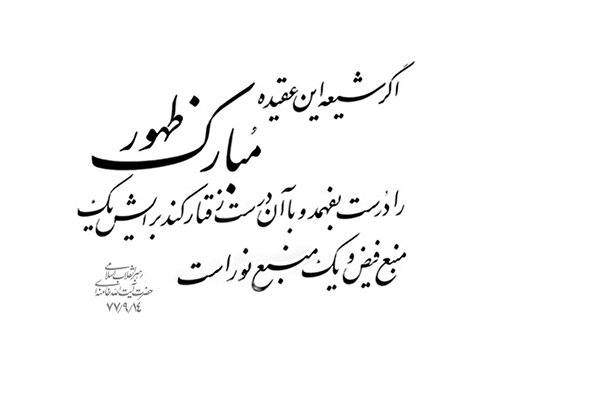 اگر شیعه این عقیده
مبارک ظهور
را دُرست بفهمد و با آن درست رفتار کند برایش یک
منبع فیض و یک منبع نور است
رهبر انقلاب اسلامی
حضرت آیت الله خامنه ای
۷۷/۹/۱۴